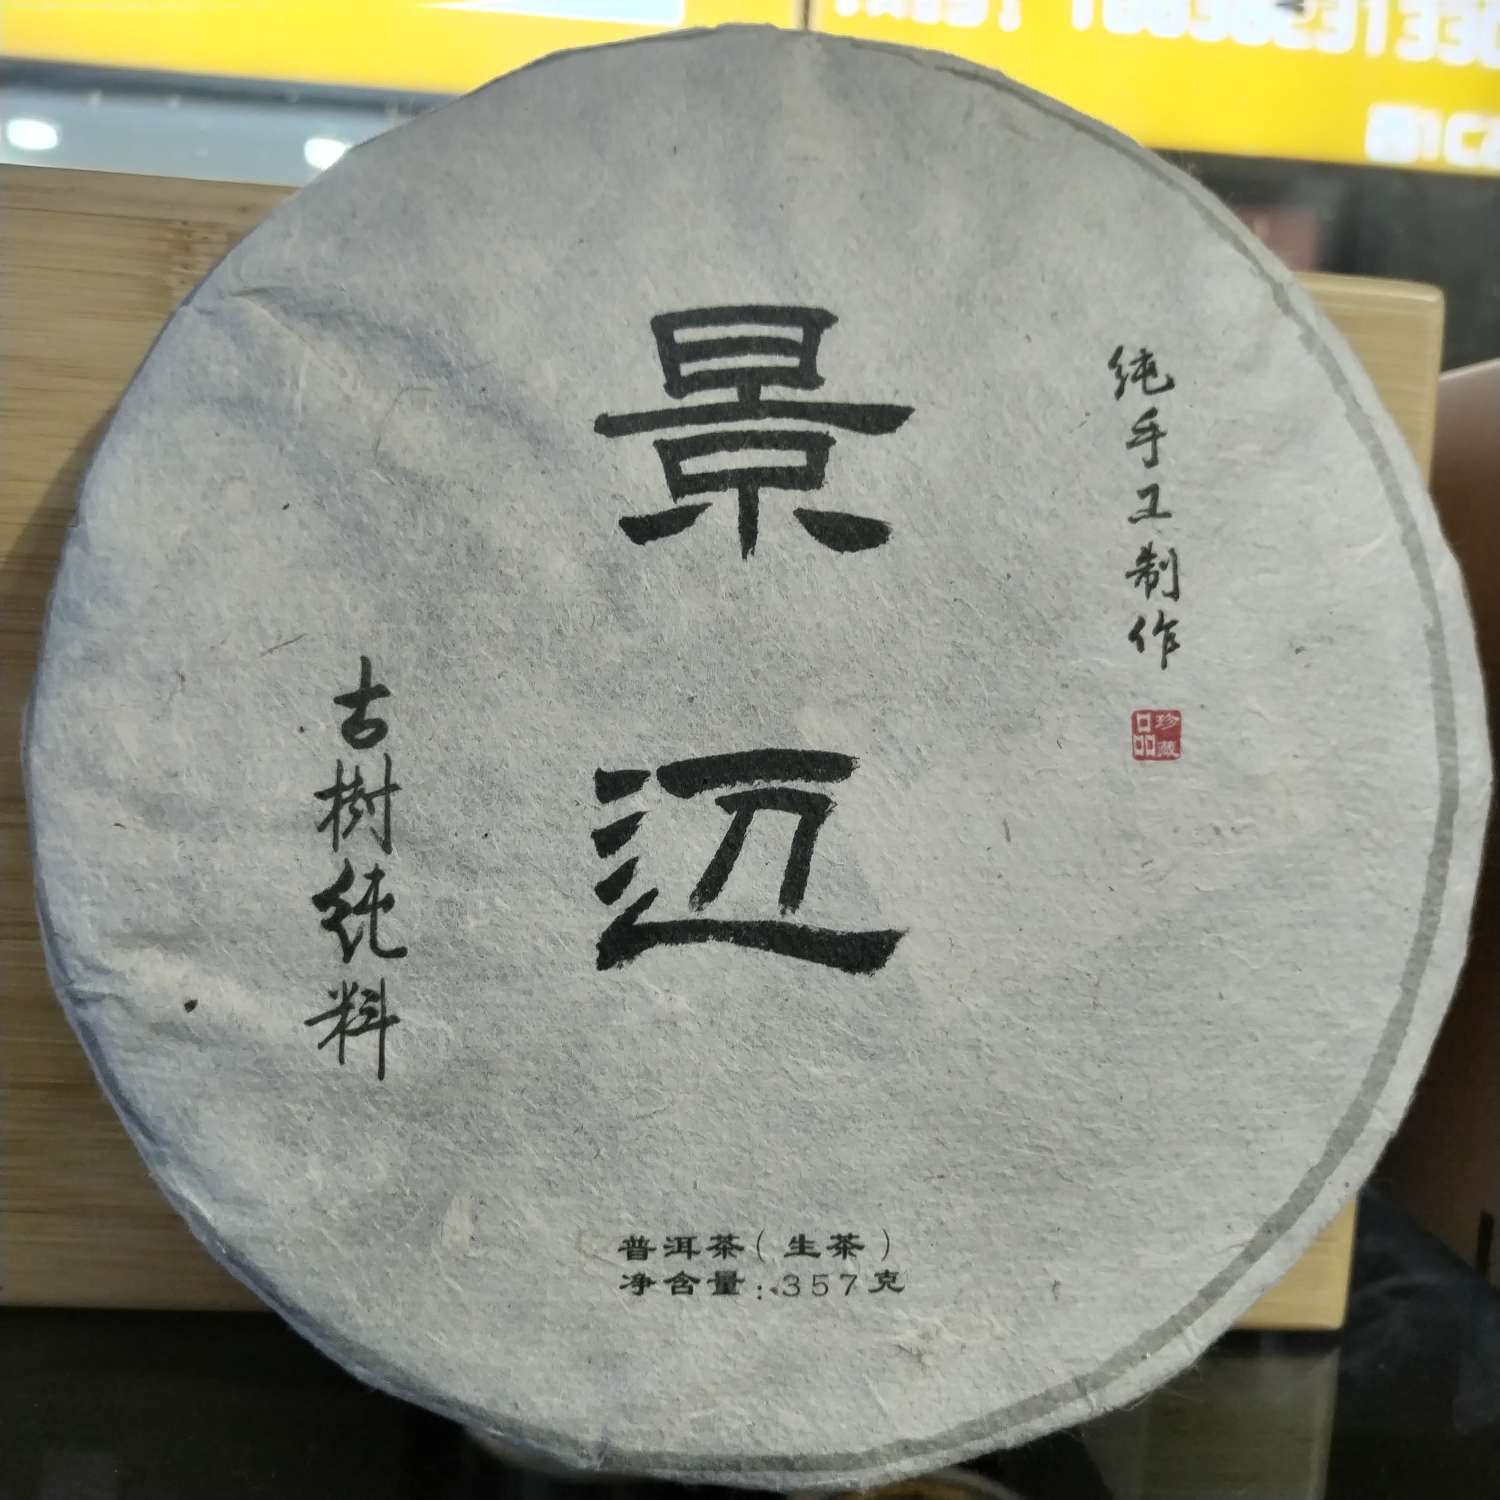 纯手工制作
珍藏
品
景迈
古樹纯料
普洱茶（生茶）
净含量：357克